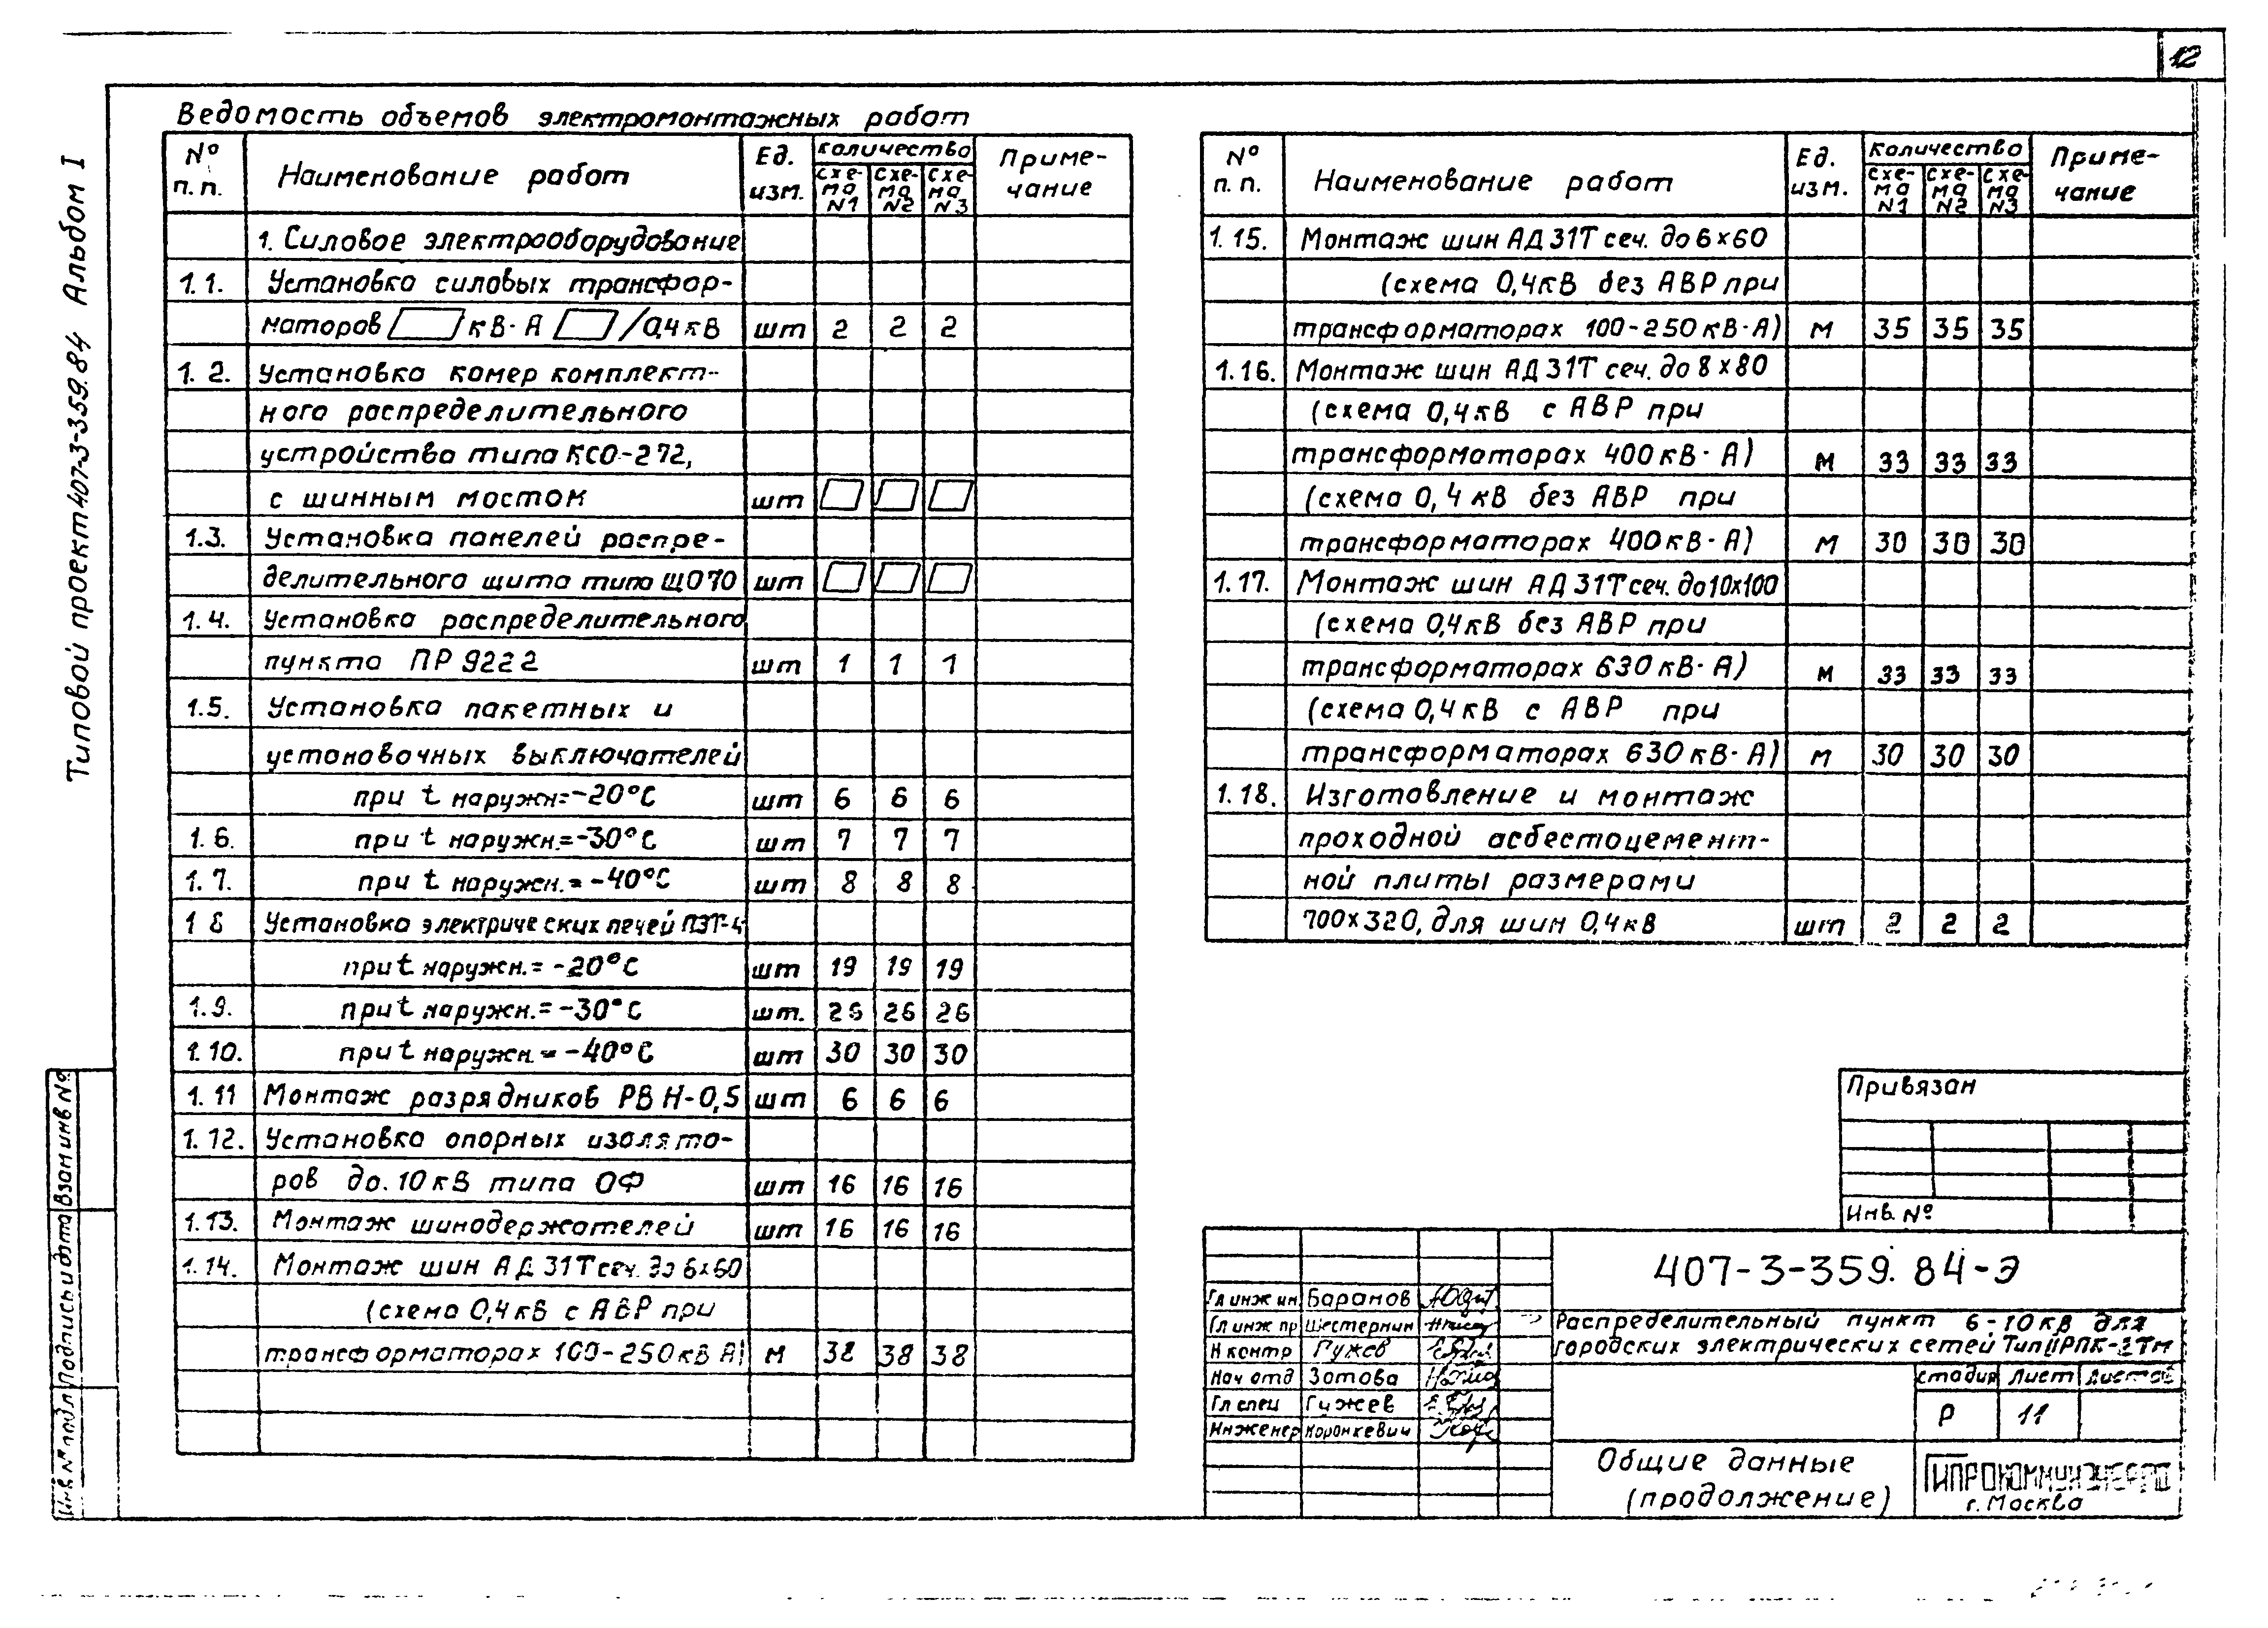 12
Типовой проект 407-3-359.84 Альбом I
Ведомость объемов электромонтажных работ
№ п.п. Наименование работ Ед. изм. Количество Приме-чание
схе-ма N1 схе-ма N2 схе-ма N3
1. Силовое электрооборудование
1.1. Установка силовых трансфор-
маторов кВ·А /0,4кВ шт 2 2 2
1.2. Установка камер комплект-
ного распределительного
устройства типа КСО-272,
с шинным мостом шт
1.3. Установка панелей распре-
делительного щита типа ЩО70 шт
1.4. Установка распределительного
пункта ПР 9222 шт 1 1 1
1.5. Установка пакетных и
установочных выключателей
при t наружн=-20°С шт 6 6 6
1.6. при t наружн.=-30°С шт 7 7 7
1.7. при t наружн.=-40°С шт 8 8 8
1 8 Установка электрических печей ПЭТ-4
при t наружн.= -20°С шт 19 19 19
1.9. при t наружн.= -30°С шт. 26 26 26
1.10. при t наружн.= -40°С шт 30 30 30
1.11 Монтаж разрядников РВН-0,5 шт 6 6 6
1.12. Установка опорных изолято-
ров до.10кВ типа ОФ шт 16 16 16
1.13. Монтаж шинодержателей шт 16 16 16
1.14. Монтаж шин АД 31Т сеч. до 6×60
(схема 0,4кВ с АВР при
трансформаторах 100-250кВ А) м 38 38 38
№ п.п. Наименование работ Ед. изм. Количество Приме-чание
схе-ма N1 схе-ма N2 схе-ма N3
1.15. Монтаж шин АД 31Т сеч. до 6×60
(схема 0,4кВ без АВР при
трансформаторах 100-250кВ·А) м 35 35 35
1.16. Монтаж шин АД 31Т сеч. до 8×80
(схема 0,4кВ с АВР при
трансформаторах 400кВ·А) м 33 33 33
(схема 0,4кВ без АВР при
трансформаторах 400кВ·А) м 30 30 30
1.17. Монтаж шин АД 31Т сеч. до 10×100
(схема 0,4кВ без АВР при
трансформаторах 630кВ·А) м 33 33 33
(схема 0,4кВ с АВР при
трансформаторах 630кВ·А) м 30 30 30
1.18. Изготовление и монтаж
проходной асбестоцемент-
ной плиты размерами
700×320, для шин 0,4кВ шт 2 2 2
Привязан
Инв. №
Взам инв №
Подпись и дата
Инв. № подл
407-3-359.84-Э
Гл инж ин Баранов
Гл инж пр Шестернин
Н контр Гужев
Нач отд Зотова
Гл спец Гужев
Инженер Коронкевич
Распределительный пункт 6-10кВ для
городских электрических сетей Тип IIРПК-2Тм
стадия Лист Листов
Р 11
Общие данные
(продолжение)
ГИПРОКОММУНЭНЕРГО
г. Москва